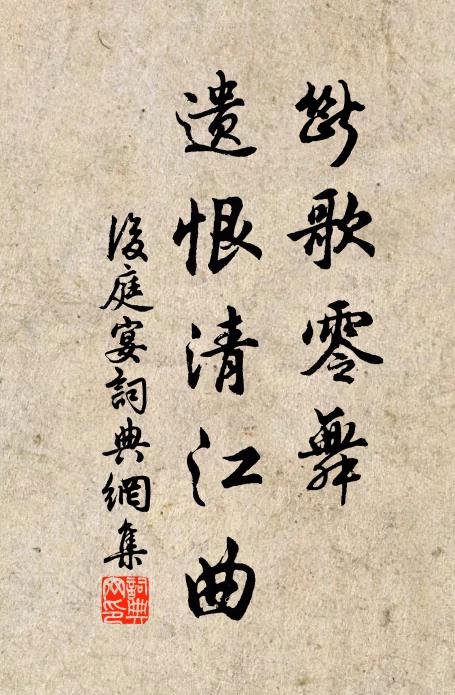 斷歌零舞
遺恨清江曲
後庭宴詞典網集
詞典網印